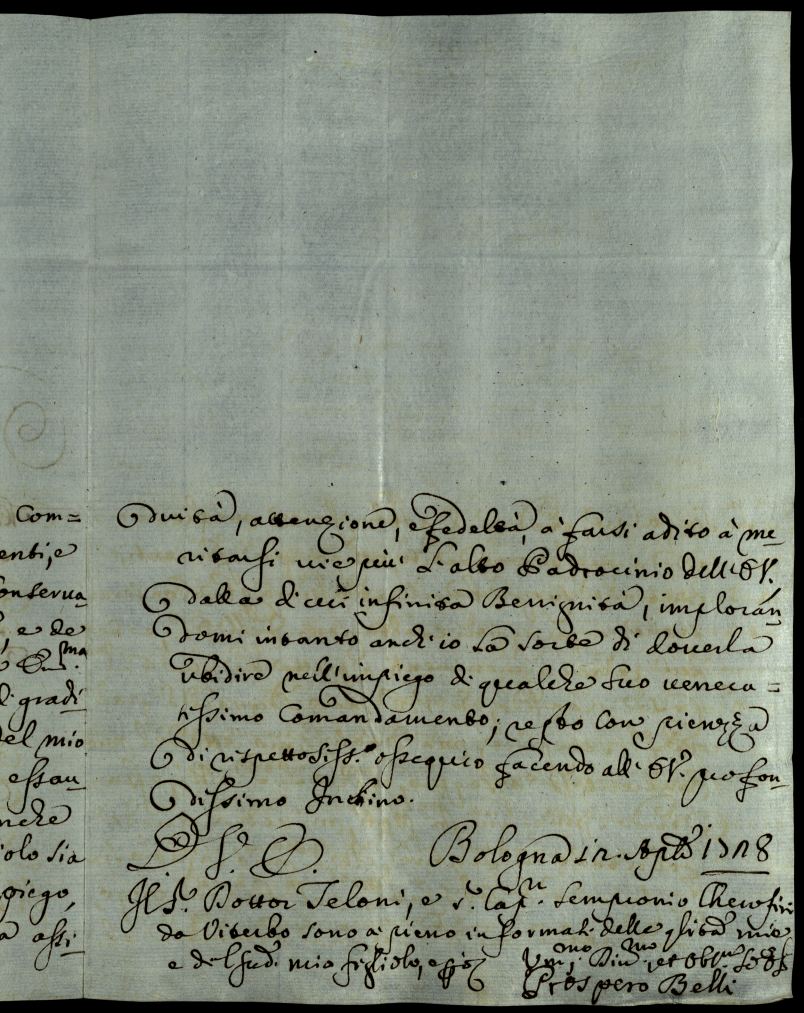 Com=
enti, e
onserua
, e de
ma
li gradi
del mio
essau
nche
iolo sia
piego,
a assi
duità, attenzione, e fedeltà, à farsi adito à me
ritarsi vie più l'alto Padrocinio dell'
dalla di cui infinita Benignità, imploran
domi intanto anch'io la sorte di douerla
ubidire nell'impiego di qualche suo venera=
tissimo Comandamento; resto con pienezza
di rispettosiss.o ossequio facendo all' profon
dissimo Inchino.
Bologna 12. Aple 1728
Il S.r Dottor Teloni, e S.r Cap.n Sempronio
da Viterbo sono à pieno informati delle qlità mie
e del sud. mio figliolo,
Um.mo Diu.mo et Obl.mo
Prospero Belli